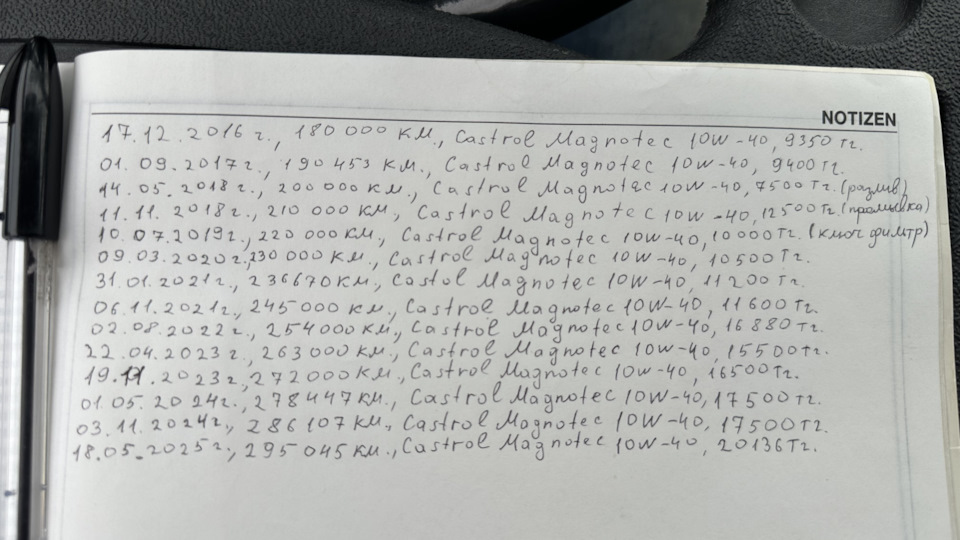 NOTIZEN
17.12.2016 г., 180 000 км., Castrol Magnotec 10W-40, 9350 тг.
01.09.2017 г., 190 453 км., Castrol Magnotec 10W-40, 9400 тг.
14.05.2018 г., 200 000 км., Castrol Magnotec 10W-40, 7500 тг. (разлив)
11.11.2018 г., 210 000 км, Castrol Magnotec 10W-40, 12500 тг. (промывка)
10.07.2019 г., 220 000 км., Castrol Magnotec 10W-40, 10000 тг. (ключ фильтр)
09.03.2020 г., 230 000 км., Castrol Magnotec 10W-40, 10500 тг.
31.01.2021 г., 236670 км., Castol Magnotec 10W-40, 11200 тг.
06.11.2021 г., 245 000 км., Castrol Magnotec 10W-40, 11600 тг.
02.08.2022 г., 254000 км., Castrol Magnotec 10W-40, 16880 тг.
22.04.2023 г., 263 000 км., Castrol Magnotec 10W-40, 15500 тг.
19.11.2023 г., 272000 км., Castrol Magnotec 10W-40, 16500 тг.
01.05.2024 г., 278447 км., Castrol Magnotec 10W-40, 17500 тг.
03.11.2024 г., 286107 км., Castrol Magnotec 10W-40, 17500 тг.
18.05.2025 г., 295 045 км., Castrol Magnotec 10W-40, 20136 тг.